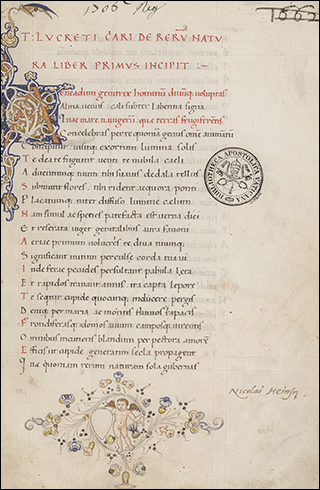 1662
T: LVCRETI CARI DE RERŨ NATV
RA LIBER PRIMVS INCIPIT :~
Eneadum genitrix hominũ diuũq; uoluptas
Alma uenus cæli subter labentia signa
Quae mare nauigerũ quæ terras frugiferentis
Concelebras per te quoniã genus omne animantũ
Concipitur uisitq; exortum lumina solis
Te dea te fugiunt uenti te nubila caeli
Aduentumq; tuum tibi suauis dedala tellus
Submittit flores tibi rident aequora ponti
Placatumq; nitet diffuso lumine cælum
Nam simul ac species patefacta est uerna diei
Et reserata uiget genitalibus aura fauoni
Aeriae primum uolucres te diua tuumq;
Significant initum perculse corda tua ui
Inde ferae pecudes persultant pabula læta
Et rapidos tranant amnis ita capta lepore
Te sequitur cupide quocunq; inducere pergis
Deniq; per maria ac montis fluuiosq; rapacis
Frondiferasq; domos auium camposq; uirentis
Omnibus incutiens blandum per pectora amorẽ
Efficis ut cupide generatim secla propagent
Quae quoniam rerum naturam sola gubernas
BIBLIOTHECA APOSTOLICA VATICANA
Nicolai Heinsij